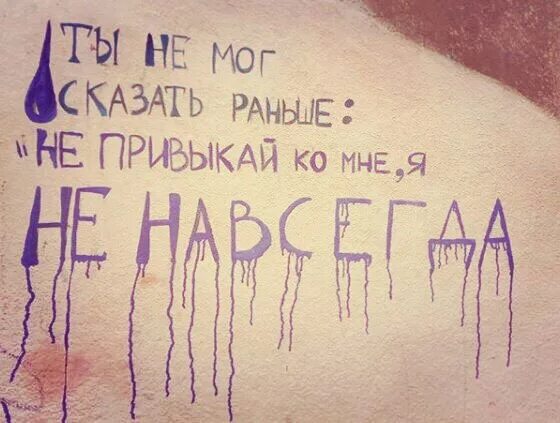 ТЫ НЕ МОГ
СКАЗАТЬ РАНЬШЕ:
"НЕ ПРИВЫКАЙ КО МНЕ, Я
НЕ НАВСЕГДА